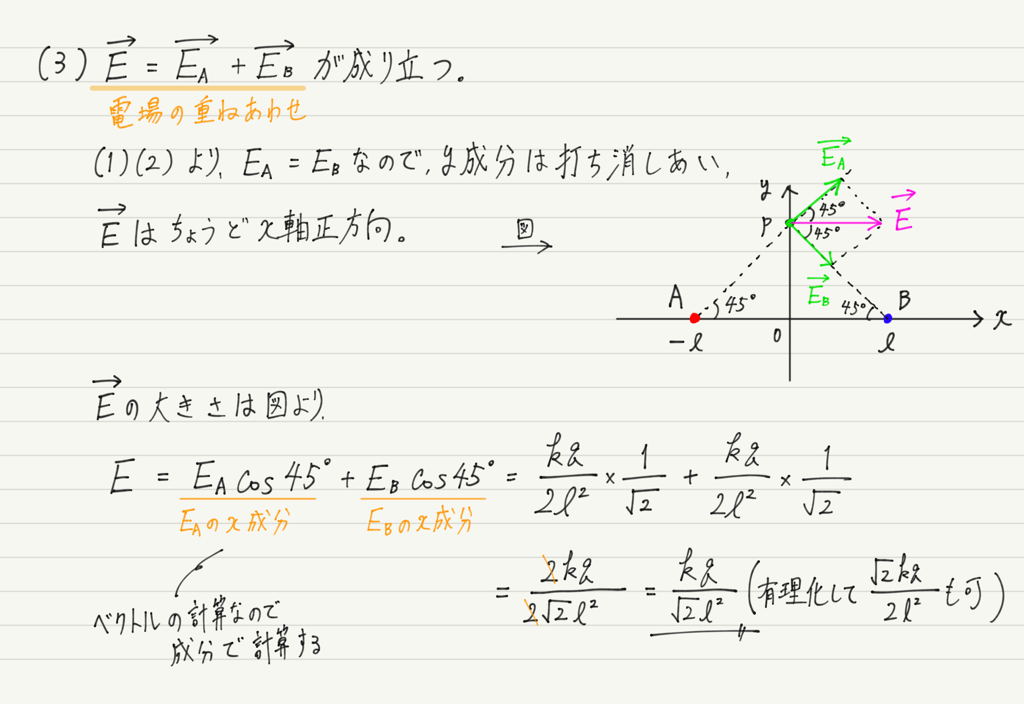 (3) $\overrightarrow{E} = \overrightarrow{E_A} + \overrightarrow{E_B}$ が成り立つ。
電場の重ねあわせ
(1)(2)より、$E_A = E_B$ なので、y成分は打ち消しあい、
$\overrightarrow{E}$ はちょうどx軸正方向。
図
$\overrightarrow{E_A}$
y
P
45°
45°
$\overrightarrow{E}$
$\overrightarrow{E_B}$
A
45°
45°
B
x
-l
0
l
$\overrightarrow{E}$ の大きさは図より、
$E = E_A \cos 45° + E_B \cos 45° = \frac{kq}{2l^2} \times \frac{1}{\sqrt{2}} + \frac{kq}{2l^2} \times \frac{1}{\sqrt{2}}$
$E_A$のx成分
$E_B$のx成分
$= \frac{2kq}{2\sqrt{2}l^2} = \frac{kq}{\sqrt{2}l^2}$ (有理化して $\frac{\sqrt{2}kq}{2l^2}$ も可)
ベクトルの計算なので
成分で計算する